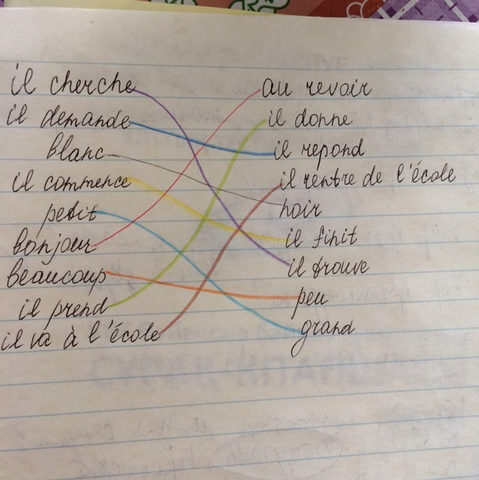 il cherche
il demande
blanc
il commence
petit
bonjour
beaucoup
il prend
il va à l'école
au revoir
il donne
il repond
il rentre de l'école
noir
il finit
il trouve
peu
grand